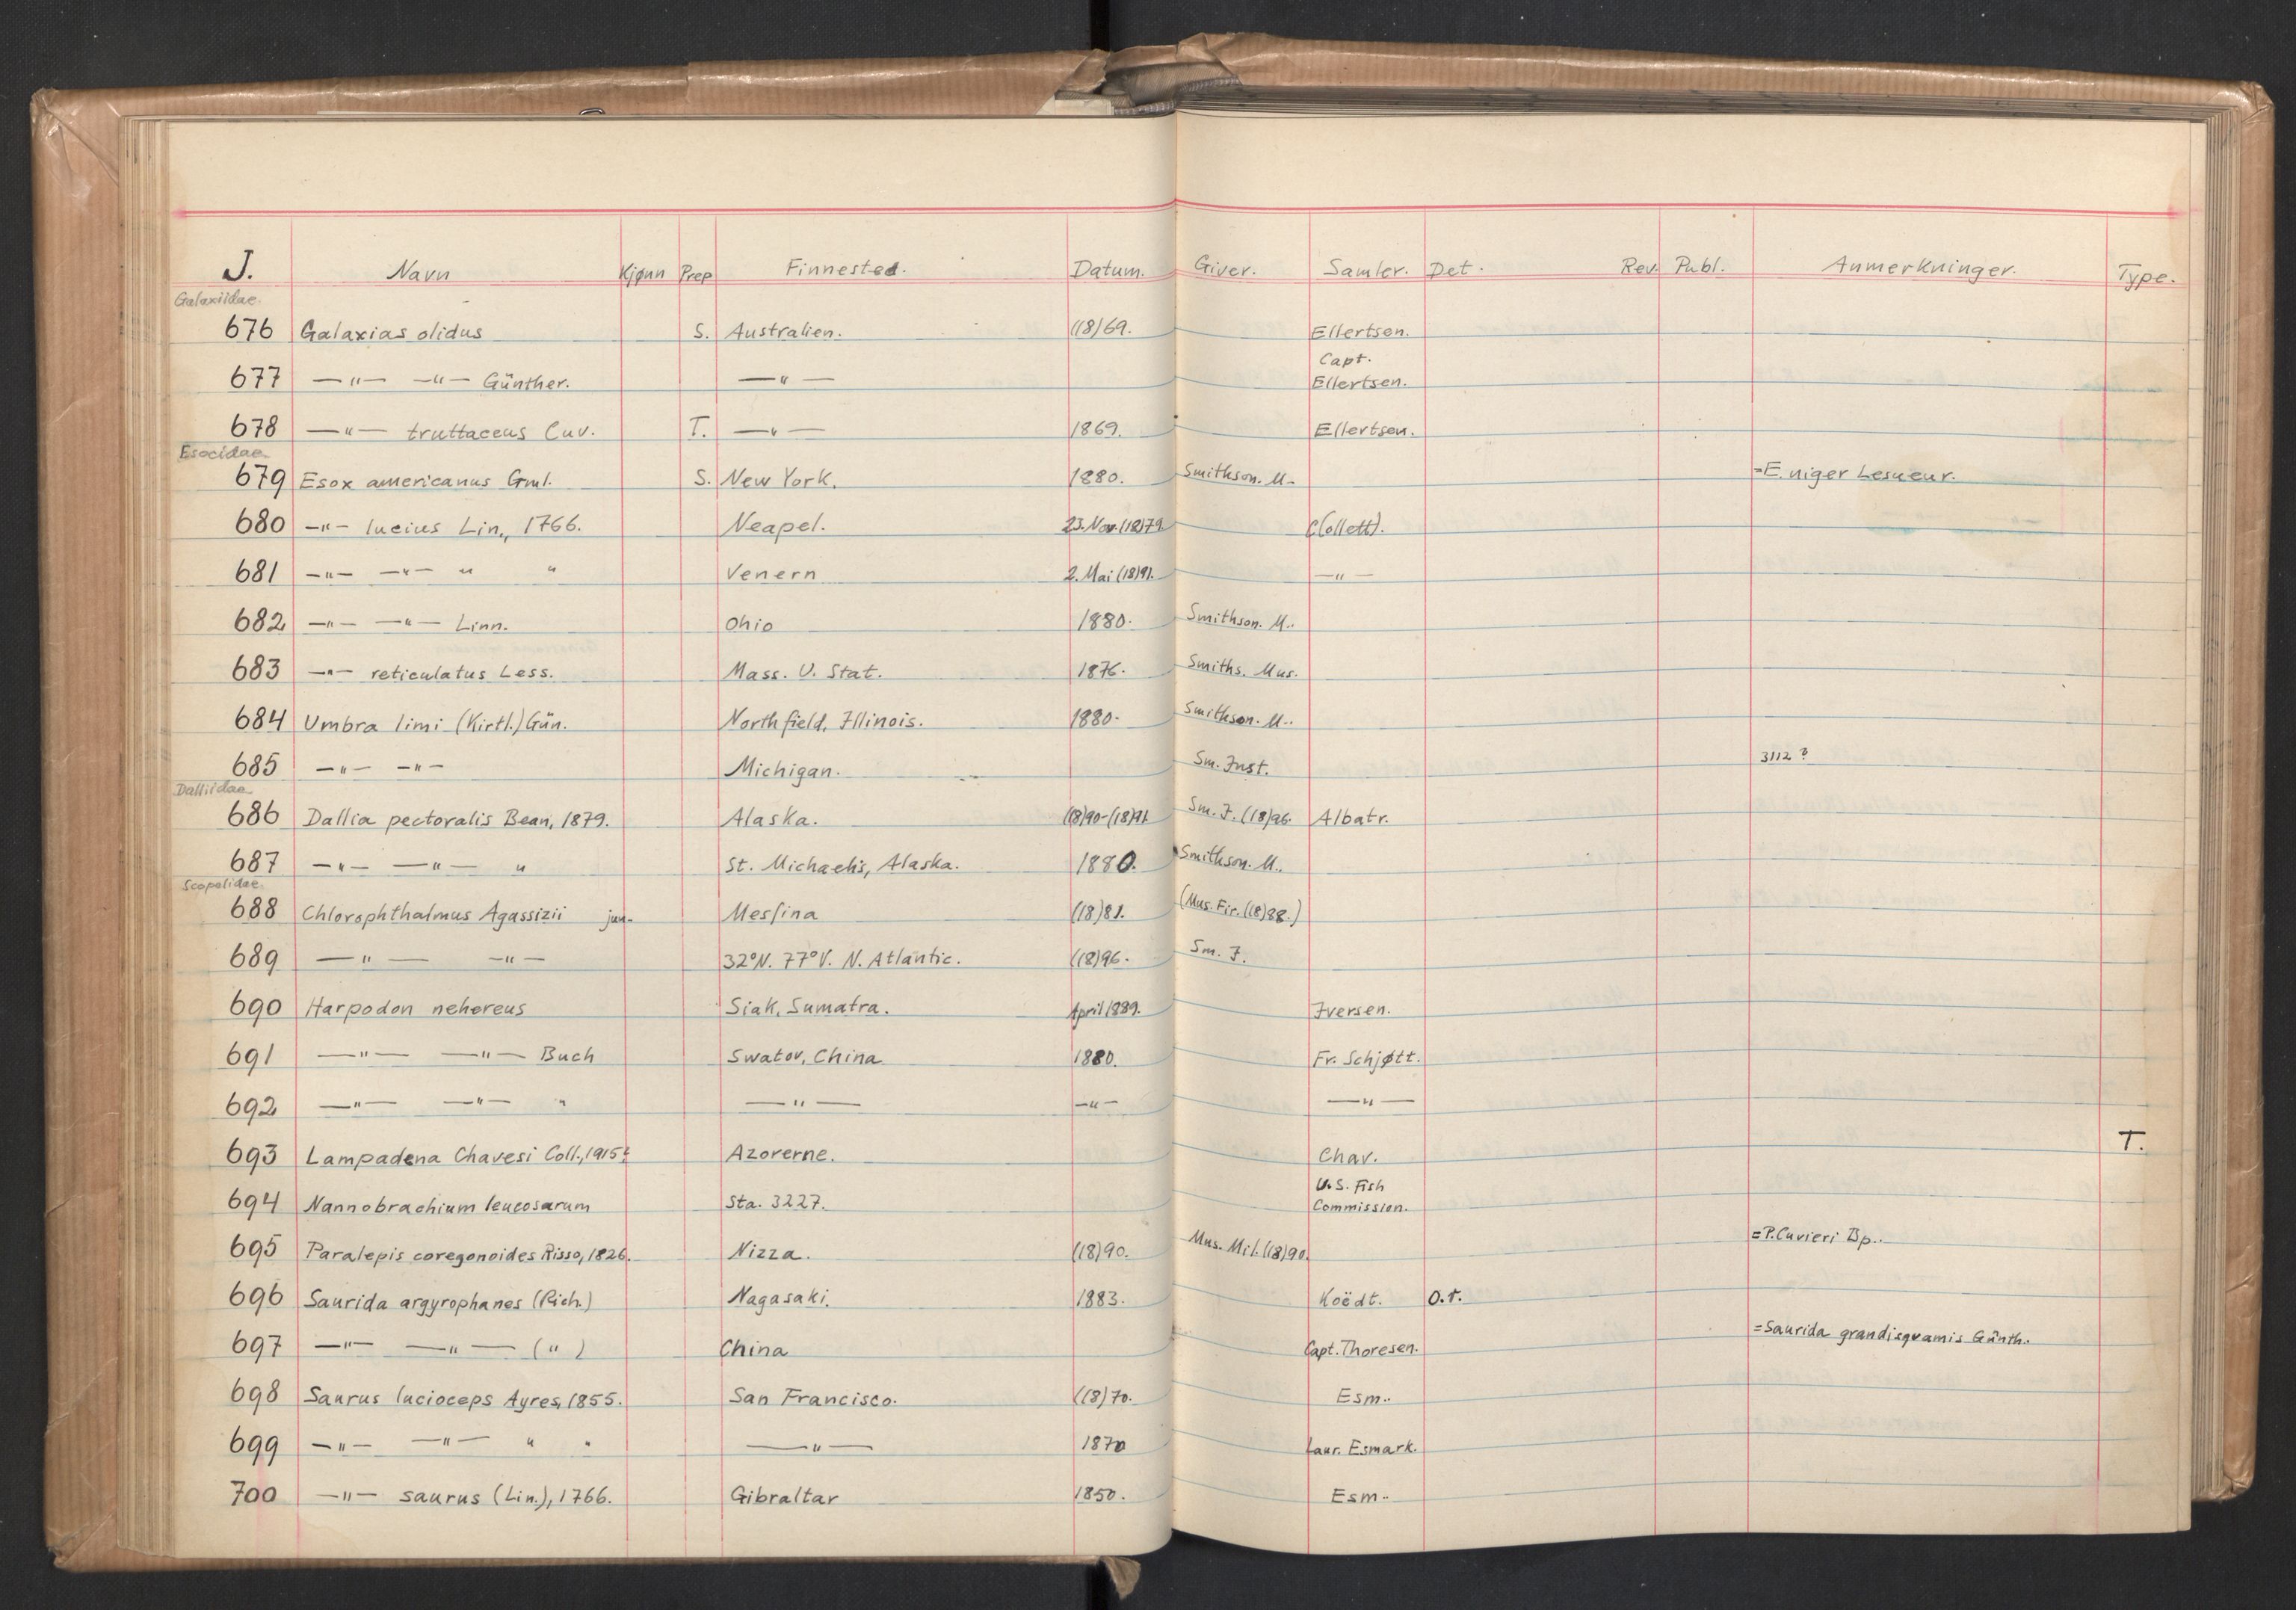 J. Navn Kjønn Prep Finnested. Datum. Giver. Samler. Det. Rev. Publ. Anmerkninger. Type.
Galaxiidae.
676 Galaxias olidus S. Australien. (18)69. Ellertsen.
677 —"— —"— Günther. —"— Capt. Ellertsen.
678 —"— truttaceus Cuv. T. —"— 1869. Ellertsen.
Esocidae
679 Esox americanus Gml. S. New York. 1880. Smithson. M. =E. niger Lesueur.
680 —"— lucius Lin., 1766. Neapel. 23. Nov. (18)79. C(ollett).
681 —"— —"— " " Venern 2. Mai (18)91. —"—
682 —"— —"— Linn. Ohio 1880. Smithson. M..
683 —"— reticulatus Less. Mass. U. Stat. 1876. Smiths. Mus.
684 Umbra limi (Kirtl.) Gün. Northfield, Illinois. 1880. Smithson. M..
685 —"— —"— Michigan. Sm. Inst. 3112?
Dalliidae
686 Dallia pectoralis Bean, 1879. Alaska. (18)90-(18)91 Sm. I. (18)96. Albatr.
687 —"— —"— " St. Michaels, Alaska. 1880. Smithson. M..
Scopelidae.
688 Chlorophthalmus Agassizii jun. Messina (18)81. (Mus. Fir. (18)88.)
689 —"— —"— 32°N. 77°V. N. Atlantic. (18)96. Sm. I.
690 Harpodon nehereus Siak, Sumatra. April 1889. Iversen.
691 —"— —"— Buch Swatov, China 1880. Fr. Schjøtt.
692 —"— —"— " —"— —"— —"—
693 Lampadena Chavesi Coll., 1915 Azorerne. Chav. T.
694 Nannobrachium leucosarum Sta. 3227. U.S. Fish Commission.
695 Paralepis coregonoides Risso, 1826. Nizza. (18)90. Mus. Mil. (18)90. =P. Cuvieri Bp..
696 Saurida argyrophanes (Rich.) Nagasaki. 1883. Koëdt. O.
697 —"— —"— (") China Capt. Thoresen. =Saurida grandisquamis Günth.
698 Saurus lucioceps Ayres, 1855. San Francisco. (18)70. Esm..
699 —"— —"— " " —"— 1870 Laur. Esmark.
700 —"— saurus (Lin.), 1766. Gibraltar 1850. Esm..